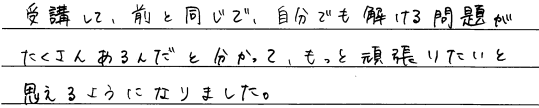 受講して、前と同じで、自分でも解ける問題が
たくさんあるんだと分かって、もっと頑張りたいと
思えるようになりました。